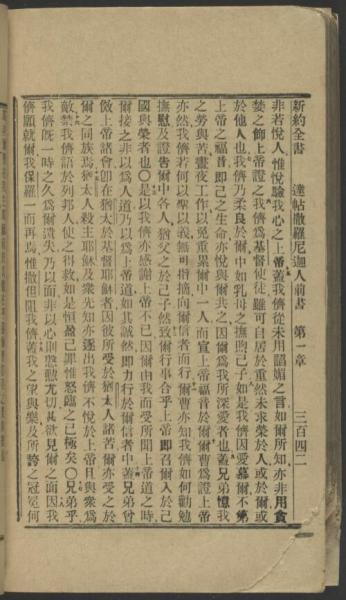 新約全書 達帖撒羅尼迦人前書 第一章 三百四二
非若悅人惟悅驗我心之上帝蓋我儕從未用諂媚之言如爾所知亦非用貪
婪之飾上帝證之我儕爲基督使徒雖可自居於重然未求榮於人或於爾或
於他人也我儕乃柔良於爾中如乳母之撫煦己子如是我儕因愛慕爾不第
上帝之福音卽己之生命亦悅與爾共之因爾爲我所深愛者也蓋兄弟憶我
之勞與苦晝夜工作以免重累爾中一人而宣上帝福音於爾爾曹爲證上帝
亦然我儕若何以聖以義無可指摘向爾信者而行爾曹亦知我儕如何勸勉
撫慰及證告爾中各人猶父之於己子然致爾行事合乎上帝卽召爾入於己
國與榮者也○是以我儕亦感謝上帝不已因爾由我而受所聞上帝道之時
爾接之非以爲人道乃以爲上帝道如其誠然卽力行於爾信者中蓋兄弟曾
傚上帝諸會卽在猶太於基督耶穌者因彼所受於猶太人諸苦爾亦受之於
爾之同族焉猶太人殺主耶穌及衆先知亦逐出我儕不悅於上帝且與衆爲
敵禁我儕語於列邦人使之得救如是恒盈己罪惟怒臨之已極矣○兄弟乎
我儕旣一時之久爲爾遺失乃以面非以心則愈懃尤切甚欲見爾之面因我
儕願就爾我保羅一而再焉惟撒但阻我儕蓋我之望與樂及所誇之冠冕何